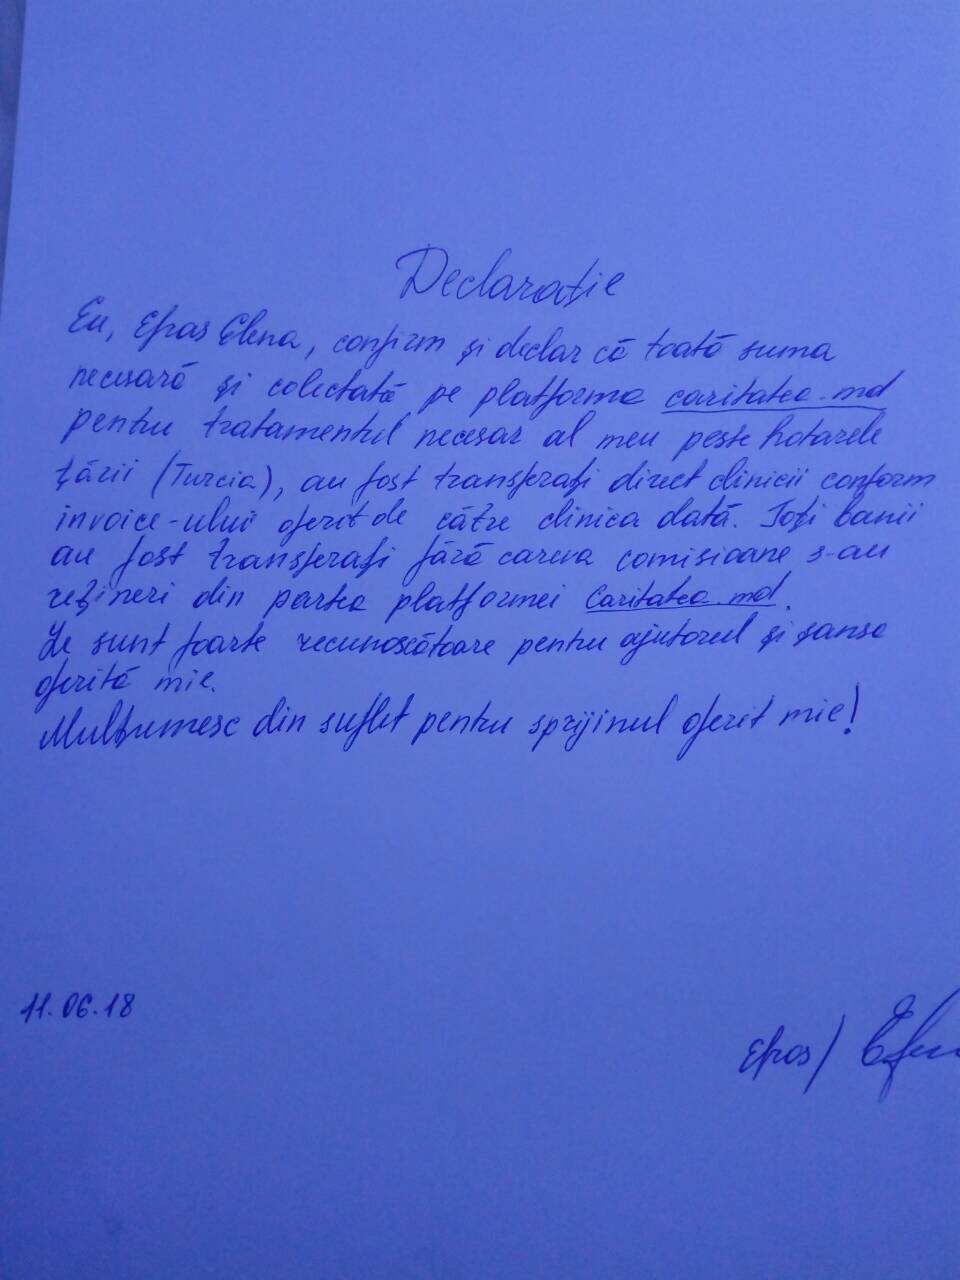 Declarație
Eu, Efros Elena, confirm și declar că toată suma
necesară și colectată pe platforma caritatea.md
pentru tratamentul necesar al meu peste hotarele
țării (Turcia), au fost transferați direct clinicii conform
invoice-ului oferit de către clinica dată. Toți banii
au fost transferați fără careva comisioane s-au
rețineri din partea platformei Caritatea.md.
Le sunt foarte recunoscătoare pentru ajutorul și șansa
oferită mie.
Mulțumesc din suflet pentru sprijinul oferit mie!
11.06.18
Efros/